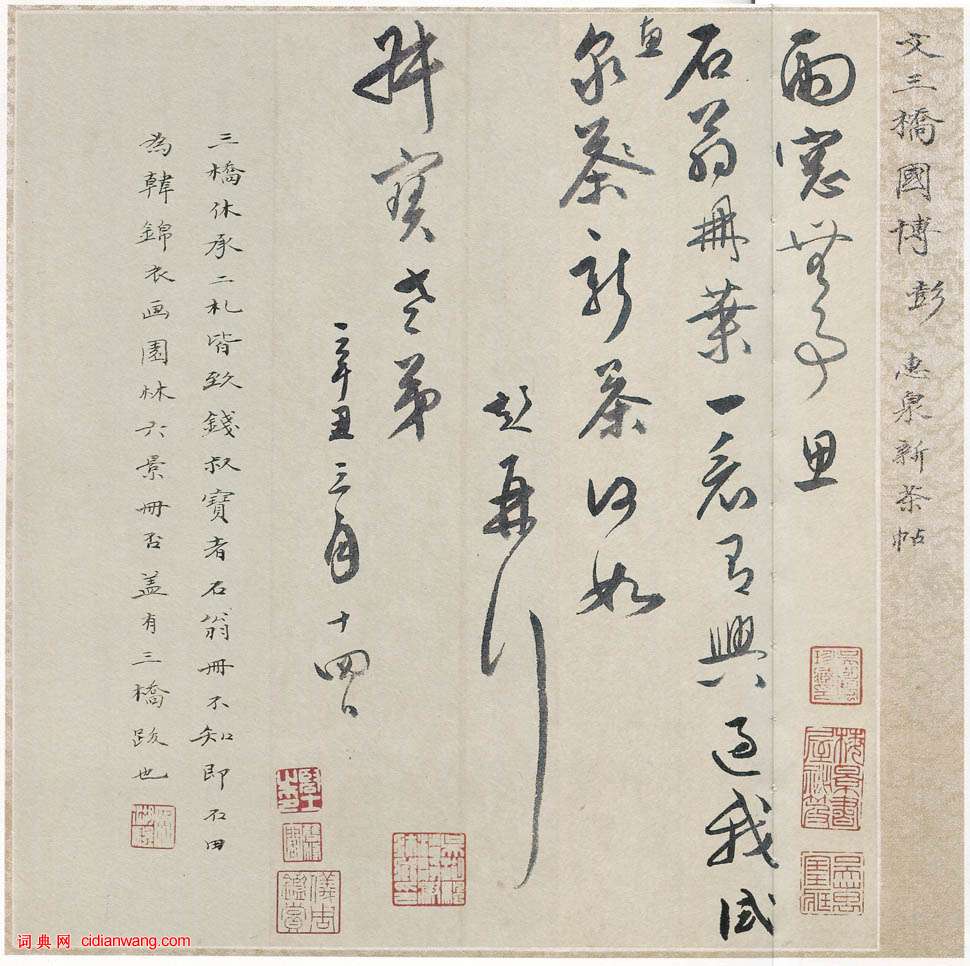 文三橋國博彭 惠泉新茶帖
雨窓無事思
石翁冊葉一看有興過我試
惠泉茶新茶何如
彭再行
叔寶老弟
辛丑三月十四日
三橋休承二札皆致錢叔寶者石翁冊不知即石田
為韓錦衣画園林六景冊否蓋有三橋跋也
词典网 cidianwang.com